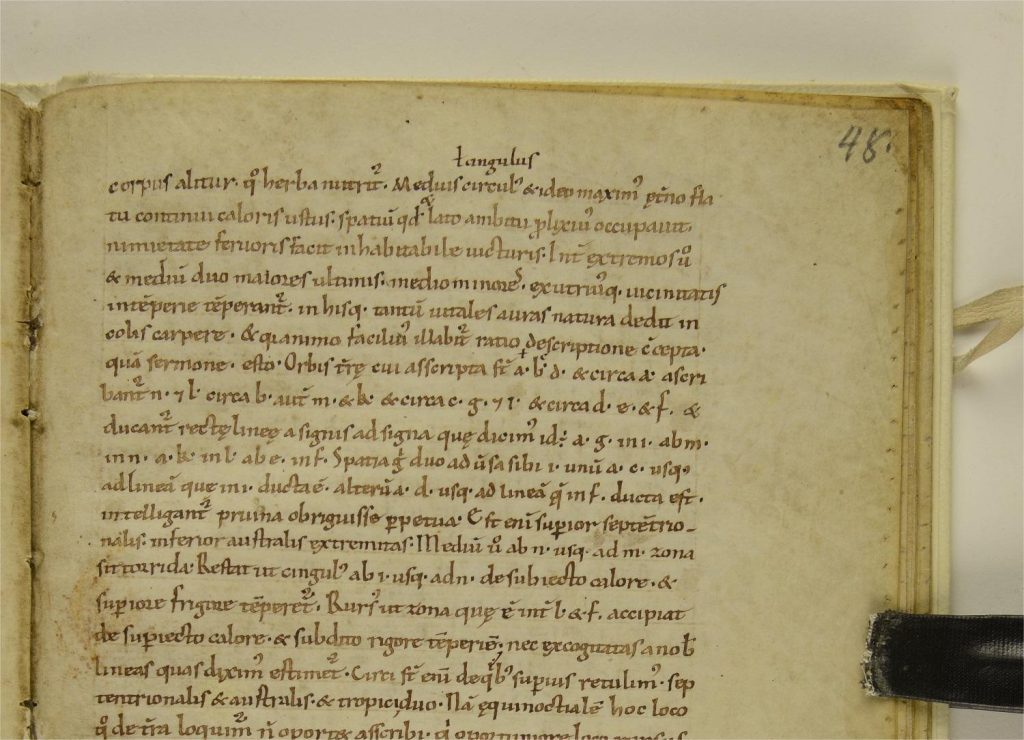 48.
ł angulus
corpus alitur· qͦ herba nutritᷣ. Medius circulꝰ & ideo maximꝰ ęt̄no fla
tu continui caloris ustus· spatiū qđ & lato ambitu ꝓlyxiuꝰ occupauit·
nimietate feruoris facit inhabitabile uicturis· Int̄ extremos ů
& mediū duo maiores ultimis· medio minores· ex utriusq· uicinitatis
intēperie tēperantᷣ· in hisq· tantū uitales auras natura dedit in
colis carpere· & quia nimo faciliuꝰ illabitᷣ ratio descriptione c̄cepta·
quā sermone· esto· Orbis t̄rę cui asscripta st̄ a· b· d· & circa a· ascri
bantᷣ n· ⁊ l· circa b· aut̄ m· & k· & circa c· g· ⁊ i· & circa d· e· & f· &
ducantᷣ rectę lineę a signis ad signa quę dicimꝰ id÷ a· g· in i· ab m·
in n· a· k· in l· ab e· in f· Spatia g̊ duo aduersa sibi i· unū a· c· usq·
ad lineā que in i· ducta ē· alterū a· d· usq· ad lineā q̄ in f· ducta est·
intelligantᷣ pruina obriguisse ꝑpetua· Est enī suꝑior septētrio–
nalis· inferior australis extremitas· Mediū ů ab n· usq· ad m· zona
sit torrida· Restat ut cingulꝰ ab i· usq· ad n· de subiecto calore· &
suꝑiore frigore tēperetᷣ· Rursꝰ ut zona quę ē int̄ l· & f· accipiat
de suꝑiecto calore· & subdito rigore tēperiē· nec excogitatas a nob̄
lineas quas diximꝰ estimetᷣ· Circi st̄ enī de qͥbꝰ suꝑius retulimꝰ· sep
tentrionalis & australis· & tropici duo· Nā ęquinoctialē hoc loco
qͦ de t̄ra loquimᷣ n̄ oport& asscribi·